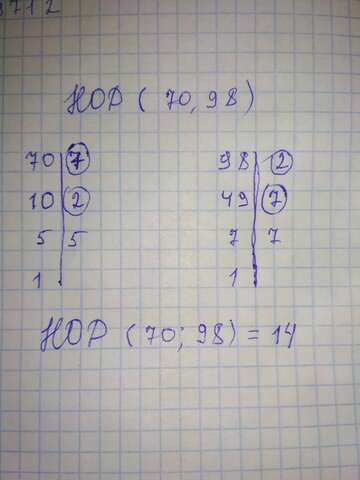 НОД (70, 98)
70 7 98 2
10 2 49 7
5 5 7 7
1 1
НОД (70; 98) = 14